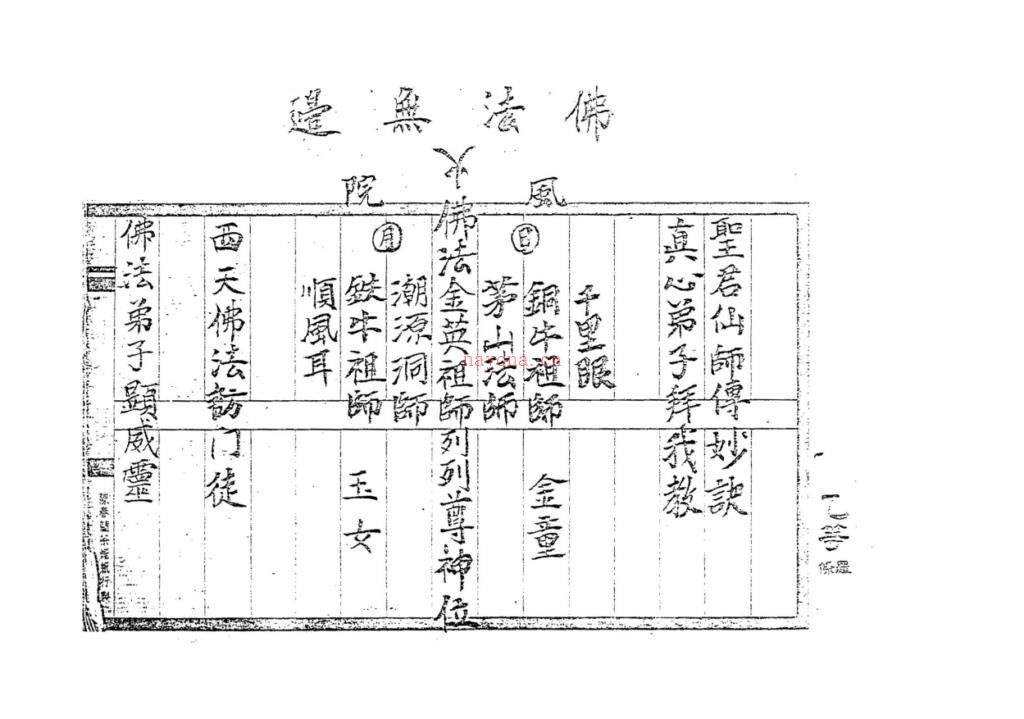 佛法無邊
風院
聖君仙師傳妙訣
真心弟子拜我教
千里眼
銅牛祖師
金童
日
茅山法師
佛法金英祖師列列尊神位
月
潮源洞師
鉄牛祖師
玉女
順風耳
西天佛法訪门徒
佛法弟子顕威靈
nardna.cn